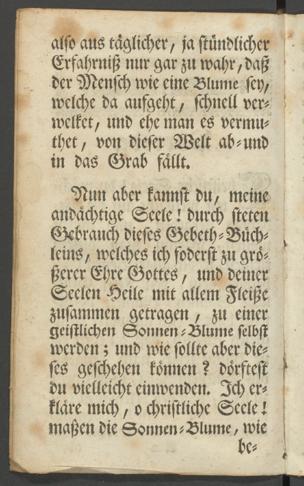 also aus täglicher, ja stündlicher
Erfahrniß nur gar zu wahr, daß
der Mensch wie eine Blume sey,
welche da aufgeht, schnell ver-
welket, und ehe man es vermu-
thet, von dieser Welt ab-und
in das Grab fällt.
Nun aber kannst du, meine
andächtige Seele! durch steten
Gebrauch dieses Gebeth-Büch-
leins, welches ich foderst zu grö-
ßerer Ehre Gottes, und deiner
Seelen Heile mit allem Fleiße
zusammen getragen, zu einer
geistlichen Sonnen-Blume selbst
werden; und wie sollte aber die-
ses geschehen können? dörftest
du vielleicht einwenden. Ich er-
kläre mich, o christliche Seele!
maßen die Sonnen-Blume, wie
be-